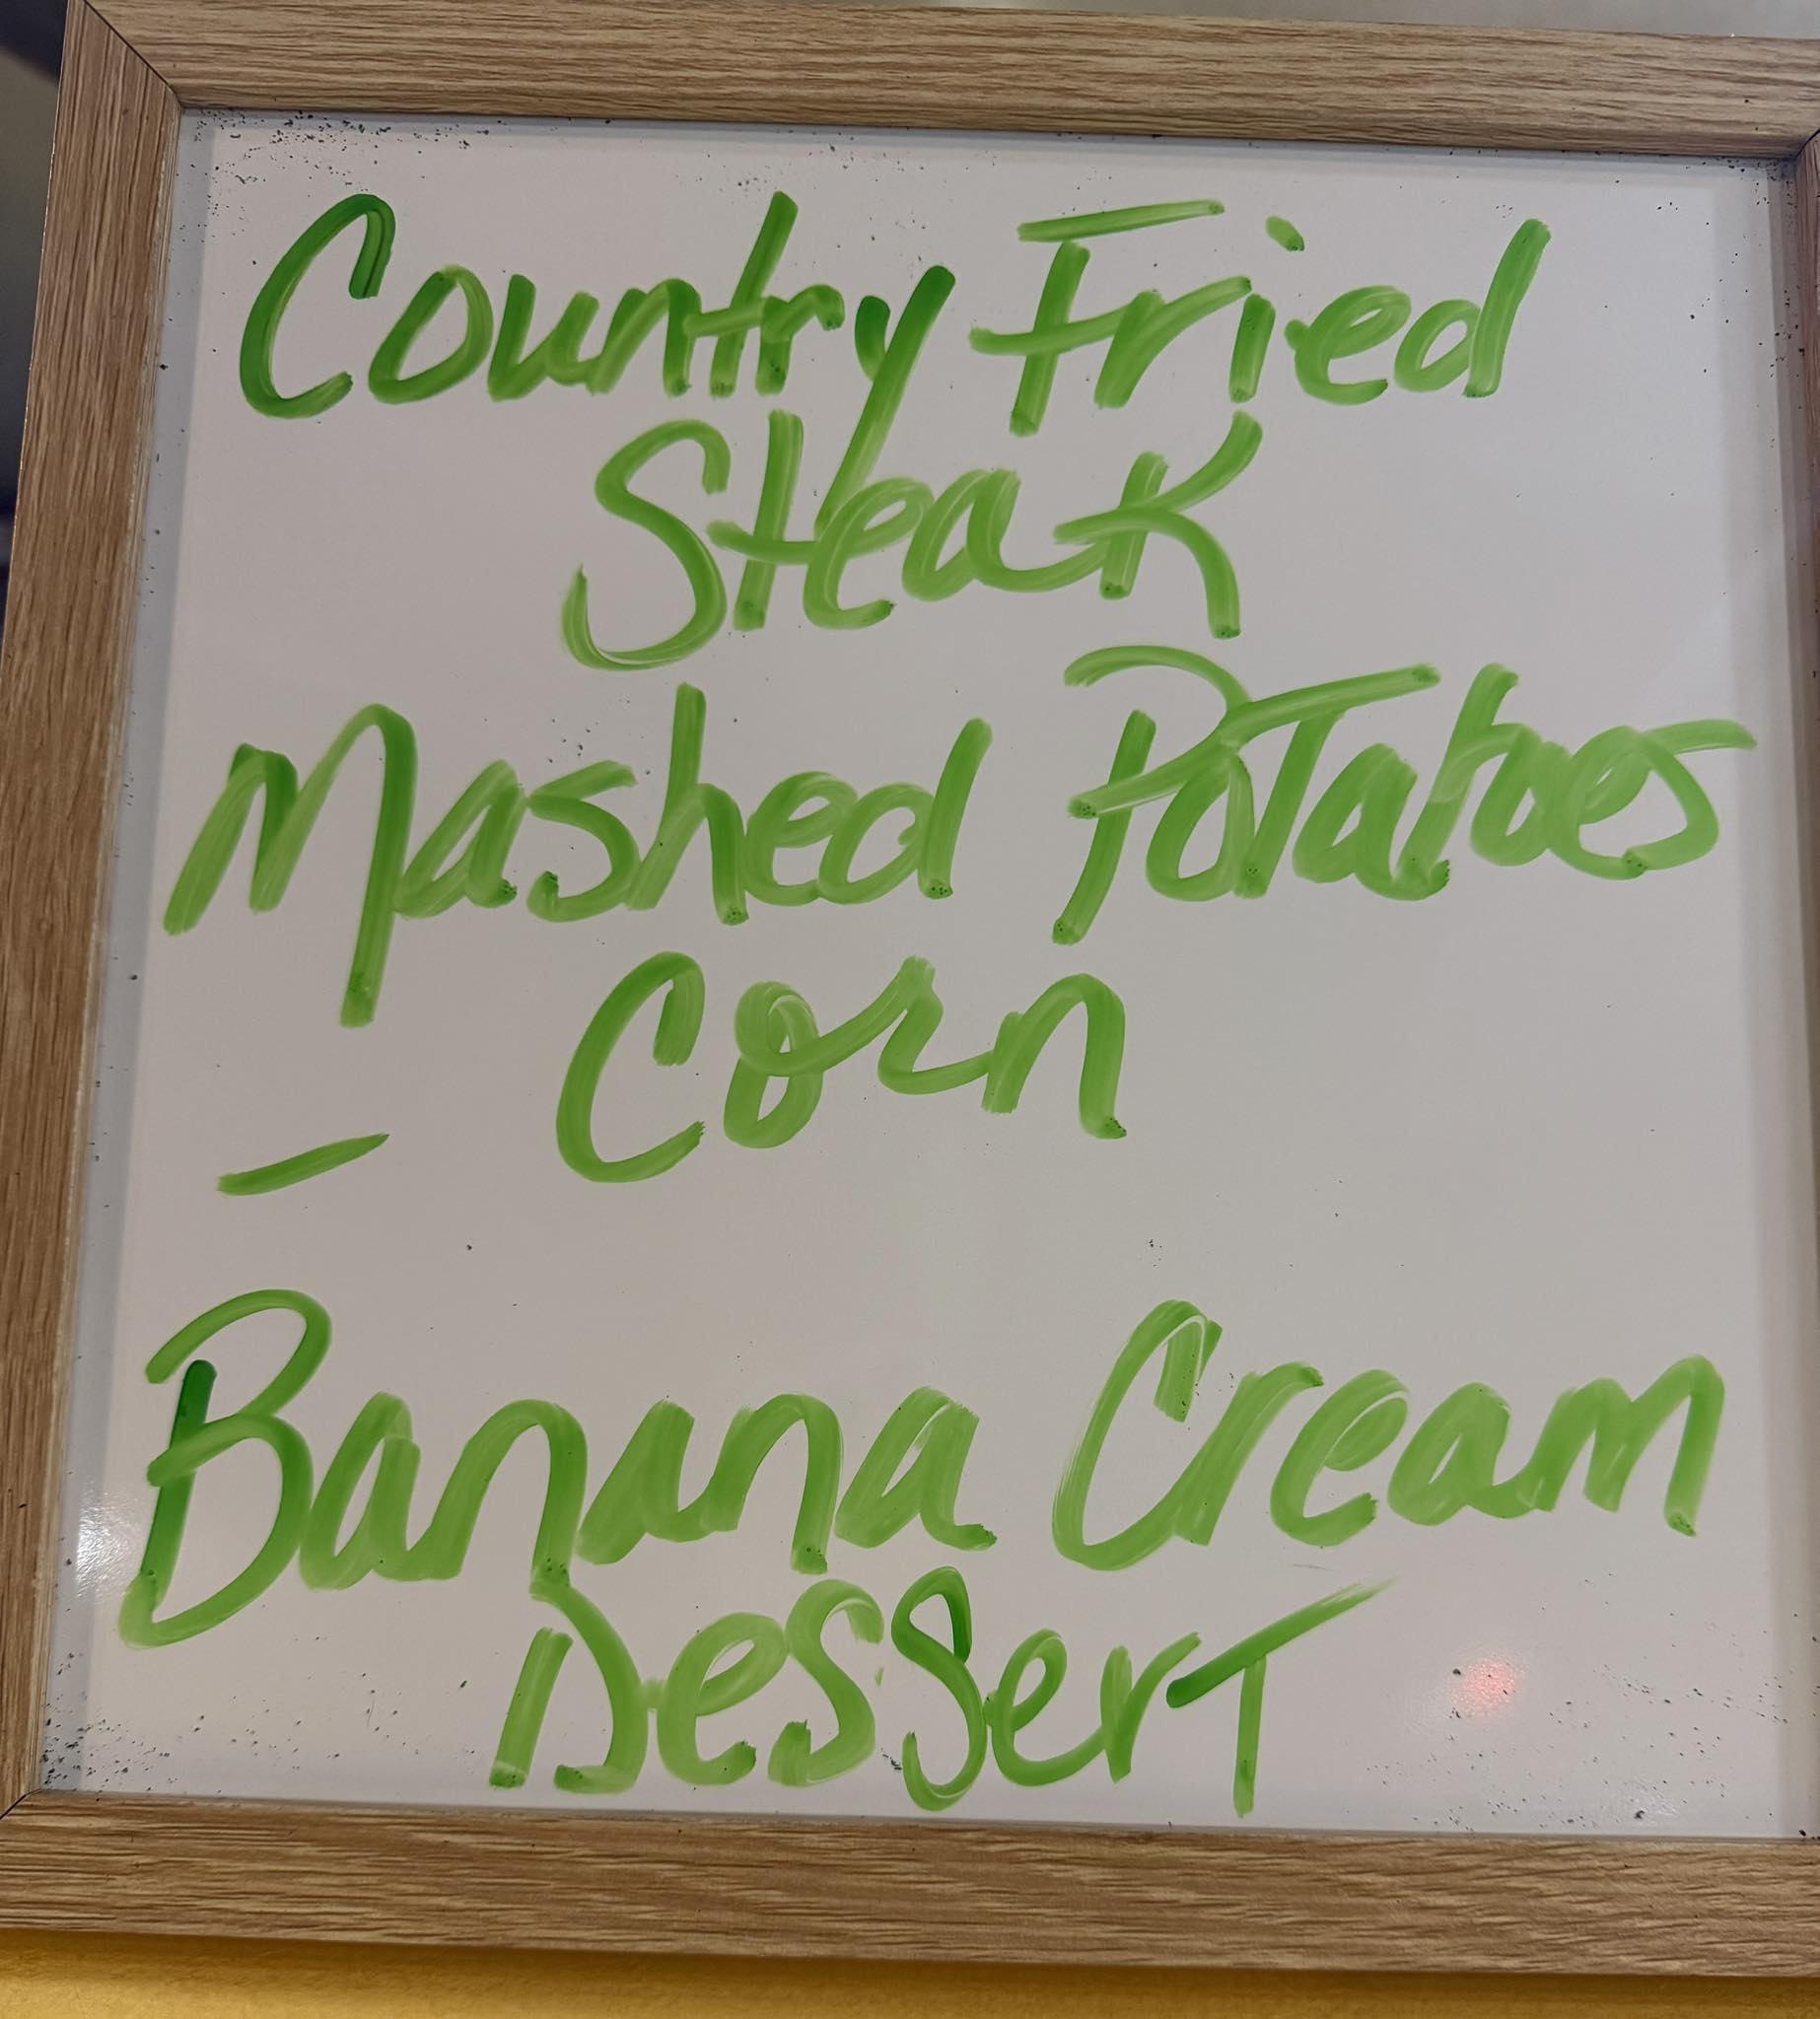 Country Fried
Steak
Mashed Potatoes
Corn
-
Banana Cream
Dessert